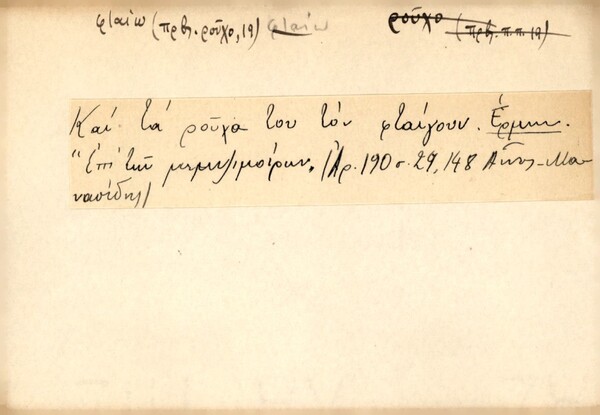 φταίω (πρβ. ρούχο, 19) φταίω
ρούχο (πρβ. π.π. 19)
Καί τά ρούχα του τόν φταίγουν. Ἑρμην.
"Ἐπί τῶν μεμψιμοίρων. (Ἀρ. 190 σ. 29, 148 Αἶνος - Μα-
νασσίδης)